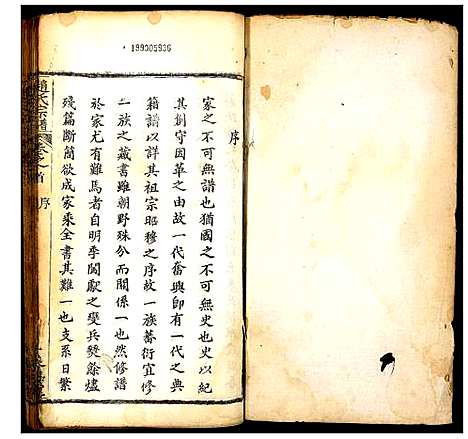 199305936
序
家之不可無譜也猶國之不可無史也史以紀
其創守因革之由故一代奮興即有一代之典
籍譜以詳其祖宗昭穆之序故一族蕃衍宜修
一族之藏書雖朝野殊分而關係一也然修譜
於家尤有難焉者自明季闖獻之變兵燹餘燼
殘篇斷簡欲成家乘全書其難一也支系日繁
趙氏宗譜
卷之首
序